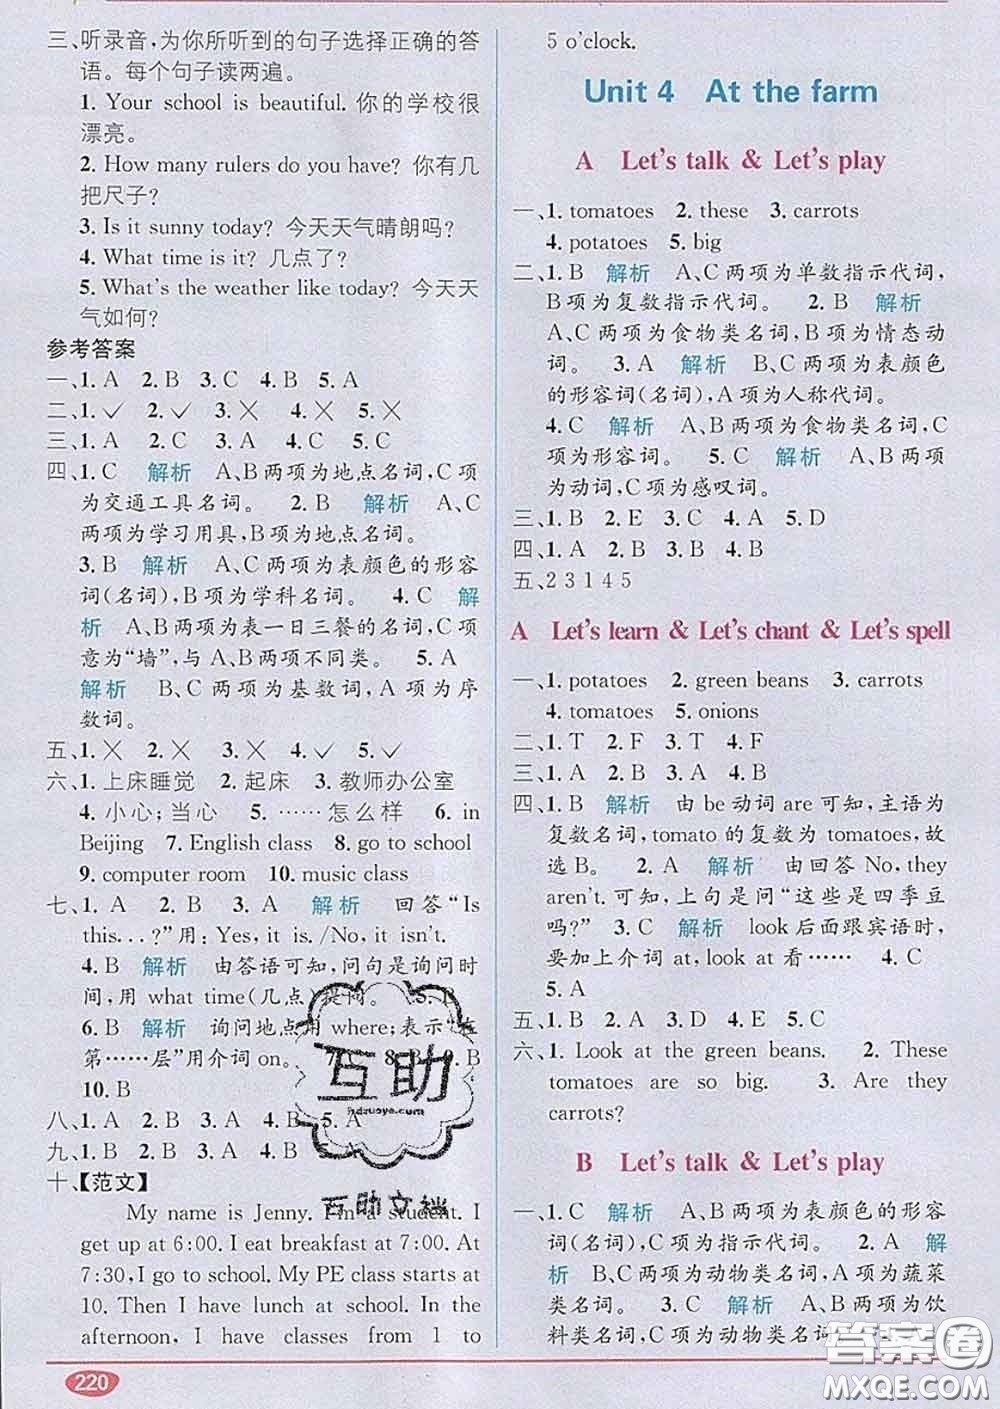 三、听录音,为你所听到的句子选择正确的答
语。每个句子读两遍。
1. Your school is beautiful. 你的学校很
漂亮。
2. How many rulers do you have? 你有几
把尺子?
3. Is it sunny today? 今天天气晴朗吗?
4. What time is it? 几点了?
5. What's the weather like today? 今天天
气如何?
参考答案
一、1. A 2. B 3. C 4. B 5. A
二、1. ✓ 2. ✓ 3. ✕ 4. ✕ 5. ✕
三、1. A 2. C 3. A 4. C 5. C
四、1. C 解析 A、B两项为地点名词,C项
为交通工具名词。 2. B 解析 A、C
两项为学习用具,B项为地点名词。
3. B 解析 A、C两项为表颜色的形容
词(名词),B项为学科名词。 4. C 解
析 A、B两项为表一日三餐的名词,C项
意为“墙”,与A、B两项不同类。 5. A
解析 B、C两项为基数词,A项为序
数词。
五、1. ✕ 2. ✕ 3. ✕ 4. ✓ 5. ✓
六、1. 上床睡觉 2. 起床 3. 教师办公室
4. 小心;当心 5. ……怎么样 6. in
Beijing 7. English class 8. go to school
9. computer room 10. music class
七、1. A 2. B 3. A 解析 回答“Is
this...?”用:Yes, it is. /No, it isn't.
4. B 解析 由答语可知,问句是询问时
间,用 what time(几点)提问。 5. B
6. B 解析 询问地点用 where;表示“在
第……层”用介词 on。 7. 8. B 9. B
10. B
八、1. A 2. B 3. A 4. B 5. A
九、1. B 2. B 3. A 4. B 5.
十、【范文】
My name is Jenny. I'm a student. I
get up at 6:00. I eat breakfast at 7:00. At
7:30, I go to school. My PE class starts at
10. Then I have lunch at school. In the
afternoon, I have classes from 1 to
220
5 o'clock.
Unit 4 At the farm
A Let's talk & Let's play
一、1. tomatoes 2. these 3. carrots
4. potatoes 5. big
二、1. B 解析 A、C两项为单数指示代词,
B项为复数指示代词。 2. B 解析
A、C两项为食物类名词,B项为情态动
词。 3. A 解析 B、C两项为表颜色
的形容词(名词),A项为人称代词。
4. C 解析 A、B两项为食物类名词,C
项为形容词。 5. C 解析 A、B两项
为动词,C项为感叹词。
三、1. B 2. E 3. C 4. A 5. D
四、1. A 2. B 3. B 4. B
五、2 3 1 4 5
A Let's learn & Let's chant & Let's spell
一、1. potatoes 2. green beans 3. carrots
4. tomatoes 5. onions
二、1. T 2. F 3. T 4. F
三、1. A 2. B 3. A 4. B
四、1. B 解析 由 be 动词 are 可知,主语为
复数名词,tomato 的复数为 tomatoes,故
选B。 2. A 解析 由回答 No, they
aren't. 可知,上句是问“这些是四季豆
吗?” 3. C 解析 look 后面跟宾语时,
要加上介词 at, look at 看…… 4. C
5. A
五、1. B 2. A 3. D 4. E 5. C
六、1. Look at the green beans. 2. These
tomatoes are so big. 3. Are they
carrots?
B Let's talk & Let's play
一、1. C 解析 A、B两项为表颜色的形容
词(名词),C项为指示代词。 2. A 解
析 B、C两项为动物类名词,A项为蔬菜
类名词。 3. C 解析 A、B两项为饮
料类名词,C项为动物类名词
互助
hdzuoye.com
互助文档
答案圈
MXQE.COM